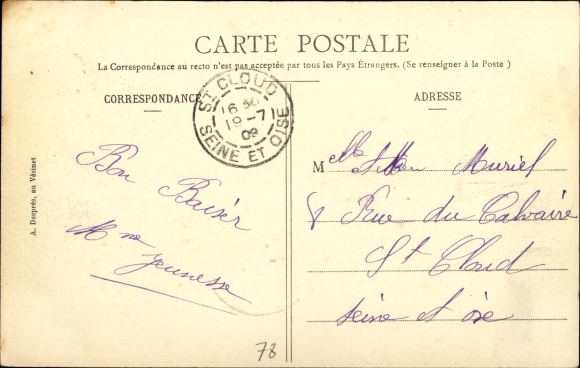 CARTE POSTALE
La Correspondance au recto n'est pas acceptée par tous les Pays Étrangers. (Se renseigner à la Poste)
CORRESPONDANCE
ADRESSE
ST CLOUD
16
19-7
09
SEINE ET OISE
A. Desprès, au Vésinet
Bon Baisér
Mme Jeunesse
Mlle Muriel
Rue du Calvaire
St Cloud
Seine et oise
78